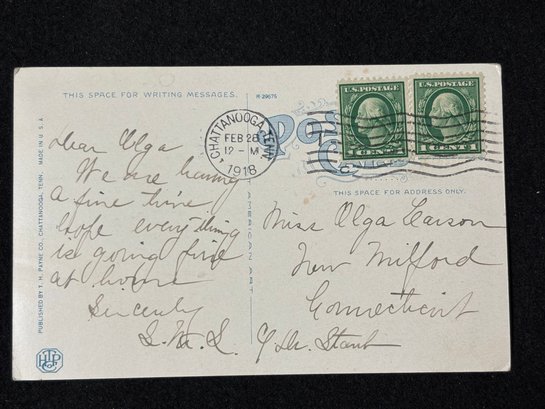 THIS SPACE FOR WRITING MESSAGES.
R-29675
CHATTANOOGA, TENN.
FEB 28
12 - M
1918
U.S. POSTAGE
1 CENT 1
U.S. POSTAGE
1 CENT 1
THIS SPACE FOR ADDRESS ONLY.
Dear Olga
We are having
a fine time
hope everything
is going fine
at home
Sincerely
Miss Olga Carson
New Milford
Connecticut
PUBLISHED BY T. H. PAYNE CO., CHATTANOOGA, TENN. MADE IN U. S. A.